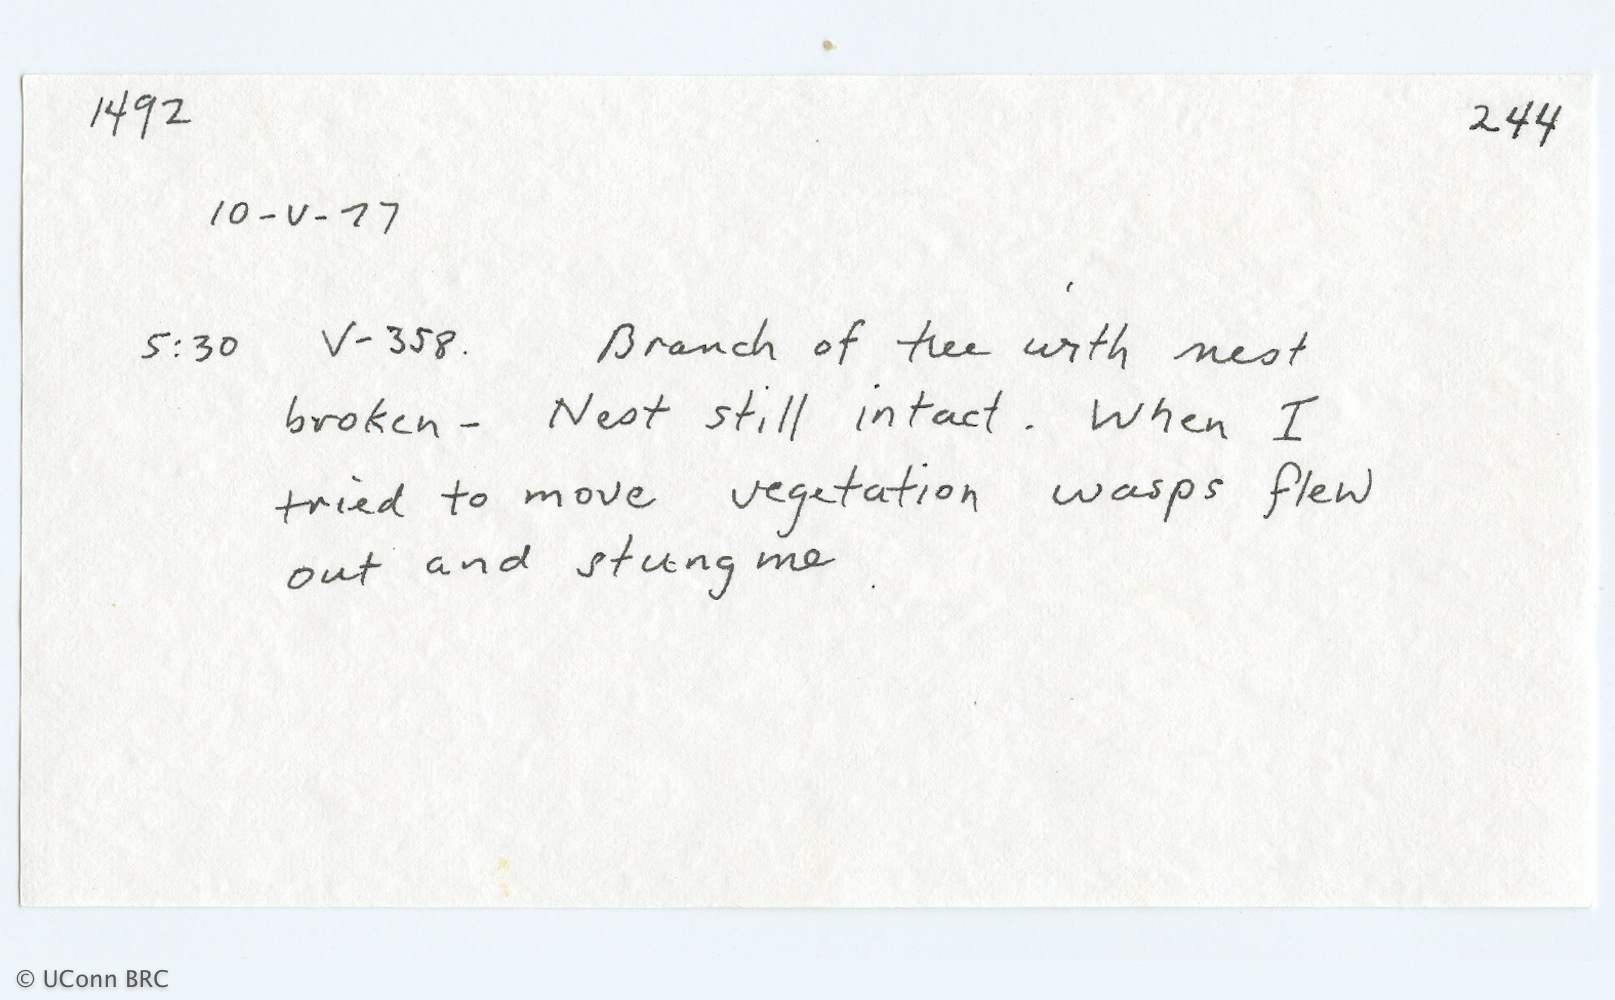 1492 244
10-V-77
5:30 V-358. Branch of tree with nest
broken - Nest still intact. When I
tried to move vegetation wasps flew
out and stung me.
© UConn BRC